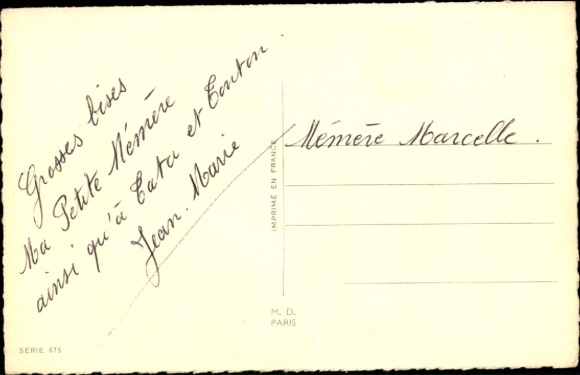 Grosses bises
Ma Petite Mémère
ainsi qu'à Tata et Tonton.
Jean-Marie
Mémère Marcelle.
IMPRIMÉ EN FRANCE
M. D.
PARIS
SÉRIE 675